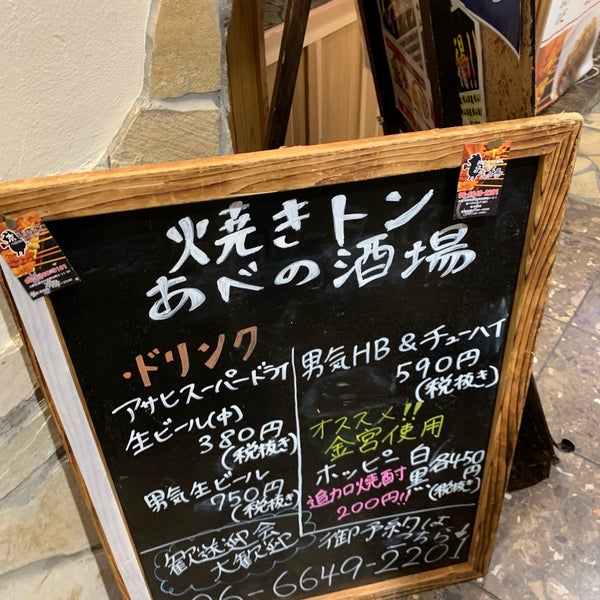 焼きトン
あべの酒場
・ドリンク
アサヒスーパードライ
生ビール(中)
380円
(税抜き)
男気生ビール
750円
(税抜き)
男気HB&チューハイ
590円
(税抜き)
オススメ!!
金宮使用
ホッピー 白黒各450円
(税抜き)
追加焼酎
200円!!
歓送迎会
大歓迎
御予約は
こちら↓
06-6649-2201